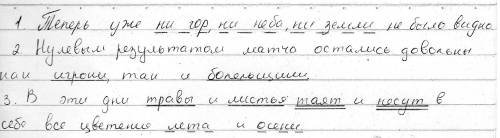 1 Теперь уже ни гор, ни неба, ни земли не было видно
2 Нулевым результатом матча остались довольны
как игроки, так и болельщики
3. В эти дни травы и листья таят и несут в
себе все цветение лета и осени